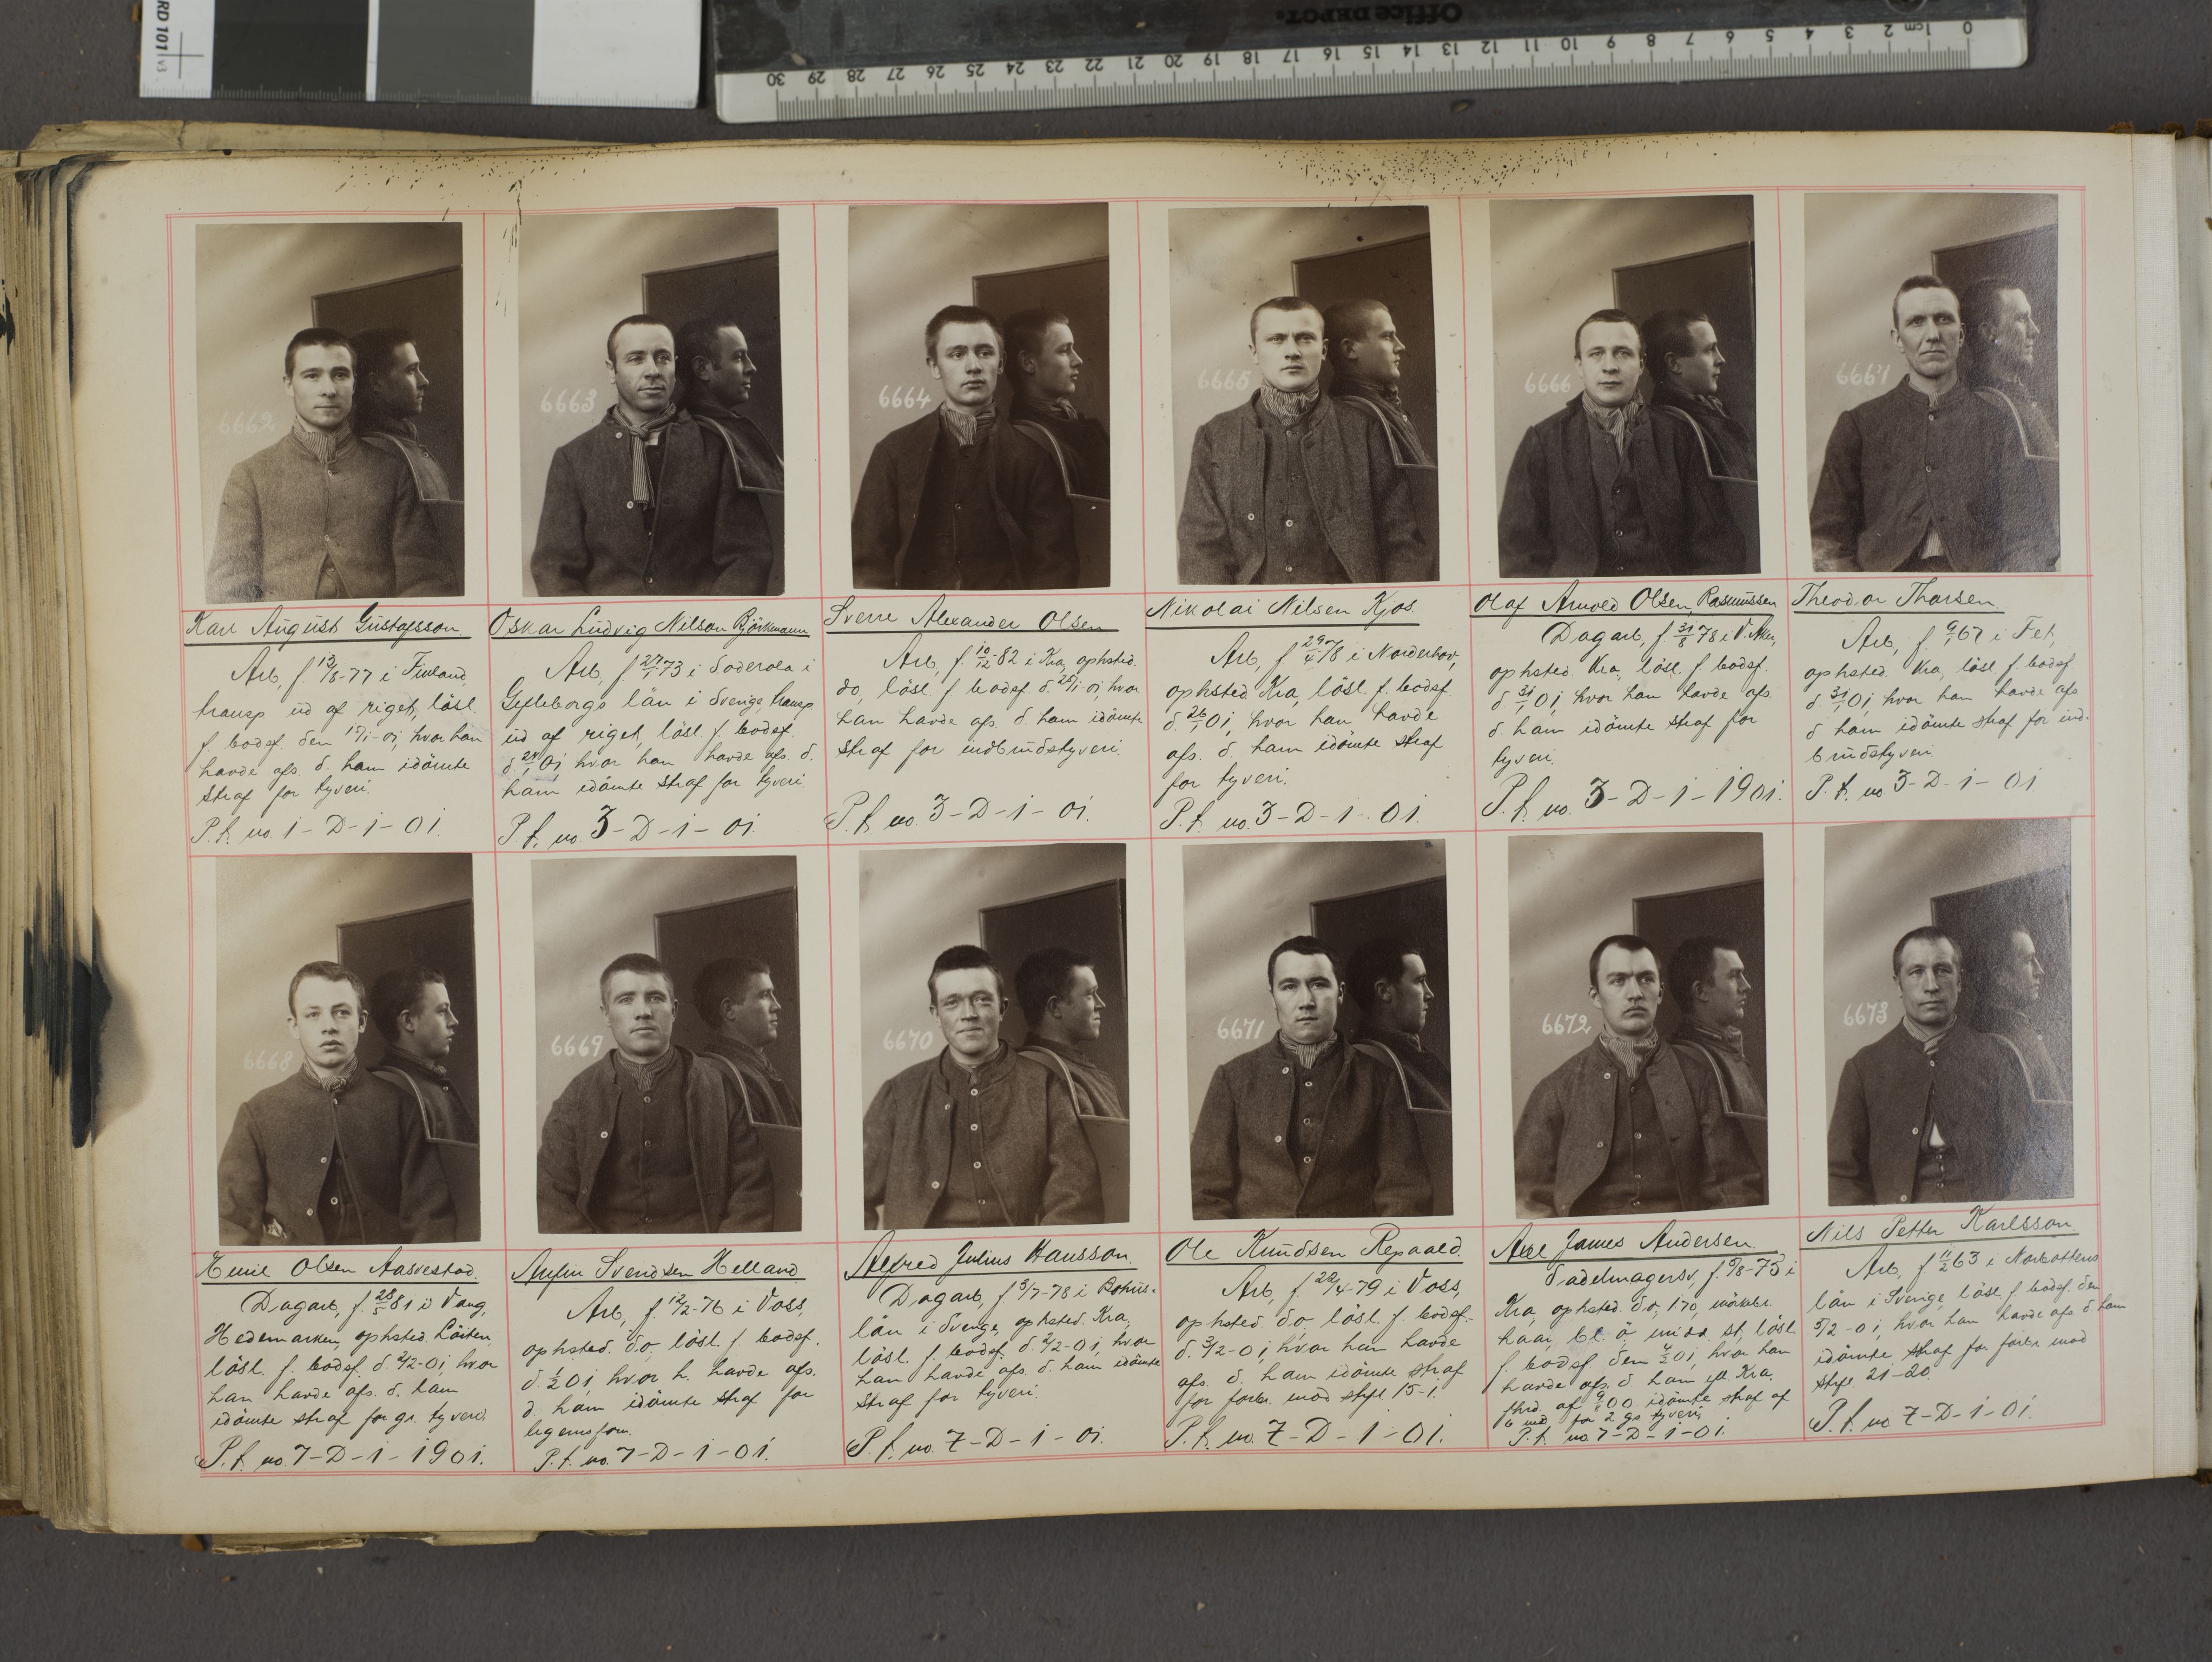 RD 101 v3
Office DEPOT.
0 1cm 2 3 4 5 6 7 8 9 10 11 12 13 14 15 16 17 18 19 20 21 22 23 24 25 26 27 28 29 30
6662
Karl August Gustafsson
Arb, f. 13/8-77 i Finland,
transp ud af riget, løsl.
f. bodsf. den 17/1-01, hvor han
havde afs. d. ham idømte
straf for tyveri.
P.f. no. 1-D-1-01.
6663
Oskar Ludvig Nilson Björkmann
Arb, f. 27/1 73 i Soderala i
Gefleborgs län i Sverige, transp
ud af riget, løsl. f. bodsf.
d. 24/1 01 hvor han havde afs. d.
ham idømte straf for tyveri.
P.f. no 3-D-1-01.
6664
Sverre Alexander Olsen
Arb, f. 10/12-82 i Kra, ophsted.
do, løsl. f. bodsf. d. 25/1-01, hvor
han havde afs. d ham idømte
straf for indbrudstyveri.
P.f. no. 3-D-1-01.
6665
Nikolai Nilsen Kjos.
Arb, f. 29/4 78 i Norderhov,
ophsted Kra, løsl. f. bodsf.
d. 26/1 01, hvor han havde
afs. d. ham idømte straf
for tyveri.
P.f. no. 3-D-1-01.
6666
Olaf Arnold Olsen Rasmussen
Dagarb, f. 31/8 78 i V. Aker,
ophsted Kra, løsl. f. bodsf.
d 31/1 01, hvor han havde afs.
d. ham idømte straf for
tyveri.
P.f. no. 3-D-1-1901.
6667
Theodor Thorsen.
Arb, f. 9/1 67 i Fet,
ophsted. Kra, løsl f. bodsf
d 31/1 01, hvor han havde afs
d ham idømte straf for ind-
brudstyveri
P.f. no 3-D-1-01
6668
Emil Olsen Aasvestad.
Dagarb, f. 28/5 81 i Vang,
Hedemarken, ophsted. Löiten
løsl. f. bodsf. d. 2/2-01, hvor
han havde afs. d. ham
idømte straf for gr. tyveri.
P.f. no. 7-D-1-1901.
6669
Anfin Svendsen Helland
Arb, f. 12/2-76 i Voss,
ophsted. do, løsl. f. bodsf.
d. 1/2 01, hvor h. havde afs.
d. ham idømte straf for
legemsforn.
P.f. no. 7-D-1-01.
6670
Alfred Julius Hansson.
Dagarb, f 5/7-78 i Bohus-
län i Sverige, ophsted. Kra,
løsl. f. bodsf. d. 2/2-01, hvor
han havde afs. d. ham idømte
straf for tyveri.
P.f. no. 7-D-1-01.
6671
Ole Knudsen Repaald.
Arb, f 22/4-79 i Voss,
ophsted do, løsl. f. bodsf.
d. 3/2-01, hvor han havde
afs. d. ham idømte straf
for forbr. mod stfl. 15-1.
P.f. no. 7-D-1-01.
6672
Axel James Andersen
Sadelmagersv, f. 5/8-73 i
Kra, ophsted. do, 170, mørkebr.
haar, bl. ø midd. st, løsl
f. bodsf. den 4/2 01, hvor han
havde afs. d ham ifl. Kra.
af 9/8 00 idømte straf af
6 md for 2 gr tyveri,
P.f. no. 7-D-1-01.
6673
Nils Petter Karlsson
Arb, f. 11/2 63 i Norbottens
län i Sverige, løsl. f. bodsf. den
5/2-01, hvor han havde afs. d. ham
idømte straf for forbr. mod
stfl. 21-20.
P.f. no 7-D-1-01.